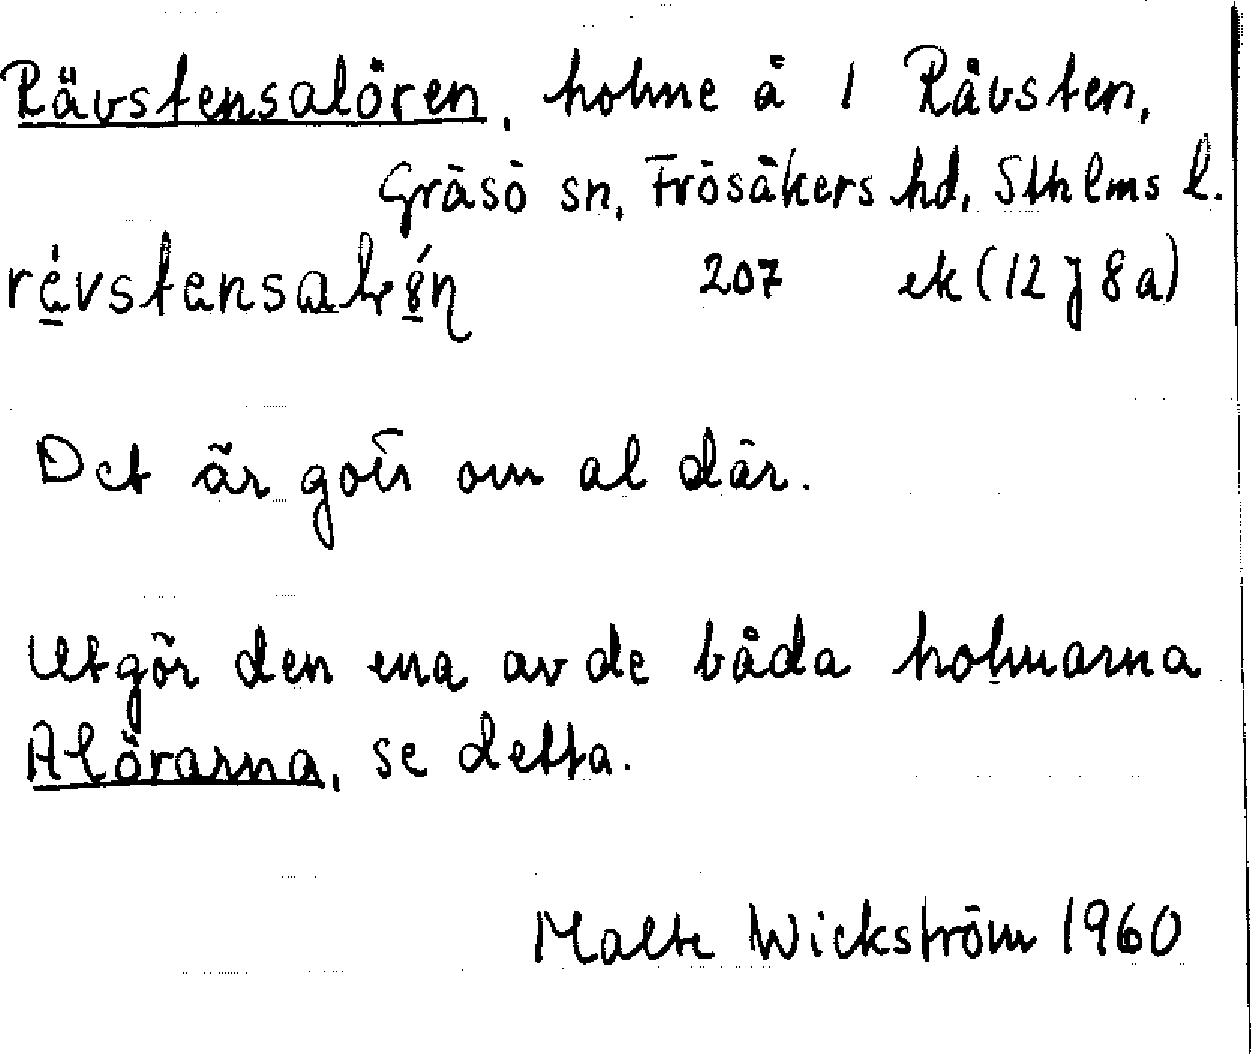 Rävstensalören, holme å 1 Rävsten,
Gräsö sn, Frösåkers hd, Sthlms l.
207 ek (12 J 8 a)
Det är gott om al där.
Utgör den ena av de båda holmarna
Alörarna, se detta.
Malte Wickström 1960